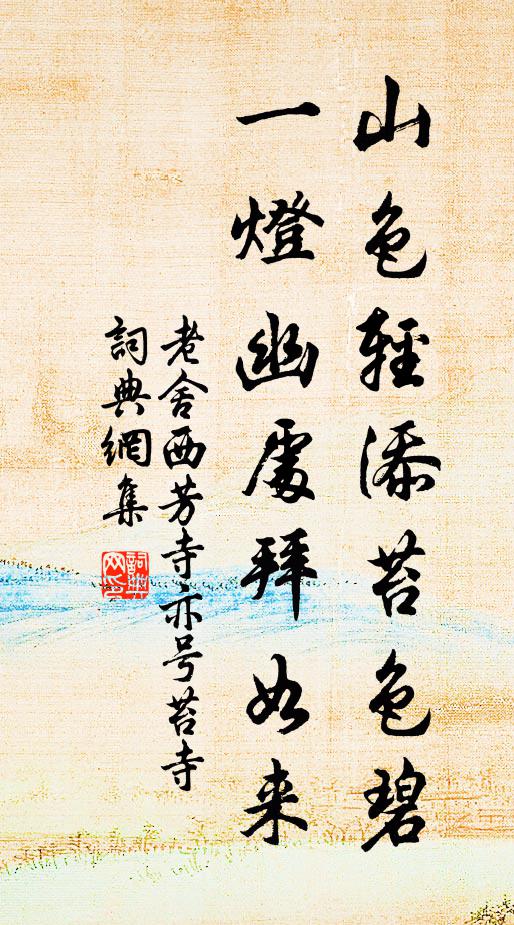 山色輕添苔色碧
一燈幽處拜如来
老舍西芳寺亦号苔寺
詞典網集